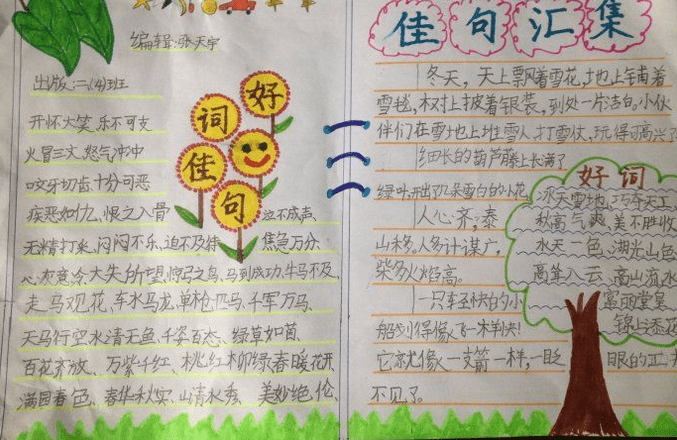 编辑:张天宇
出版:二(4)班
好词佳句
开怀大笑、乐不可支
火冒三丈、怒气冲冲
咬牙切齿、十分可恶
疾恶如仇、恨之入骨
泣不成声、
无精打采、闷闷不乐、迫不及待 焦急万分、
心灰意冷、大失所望、惊弓之鸟、马到成功、牛马不及、
走马观花、车水马龙、单枪匹马、千军万马、
天马行空、水清无鱼、千姿百态、绿草如茵、
百花齐放、万紫千红、桃红柳绿、春暖花开、
满园春色、春华秋实、山清水秀、美妙绝伦、
佳句汇集
冬天,天上飘着雪花,地上铺着
雪毯,树上披着银装,到处一片洁白,小伙
伴们在雪地上堆雪人,打雪仗,玩得可高兴了
细长的葫芦藤上长满了
绿叶,开出了几朵雪白的小花
人心齐,泰
山移。人多计谋广,
柴多火焰高。
一只轻快的小
船划得像飞一样,
它就像一支箭一样,一眨 眼的工夫
不见了。
好词
冰天雪地、巧夺天工
秋高气爽、美不胜收
水天一色、湖光山色
高耸入云、高山流水
富丽堂皇
锦上添花